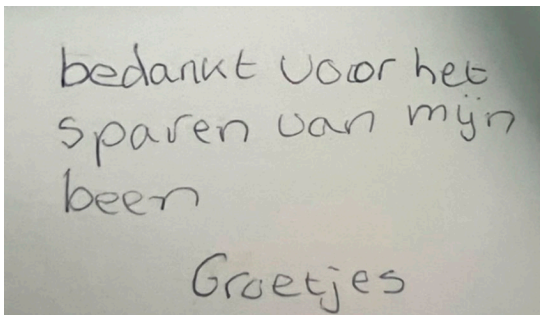 bedankt voor het
sparen van mijn
been
Groetjes